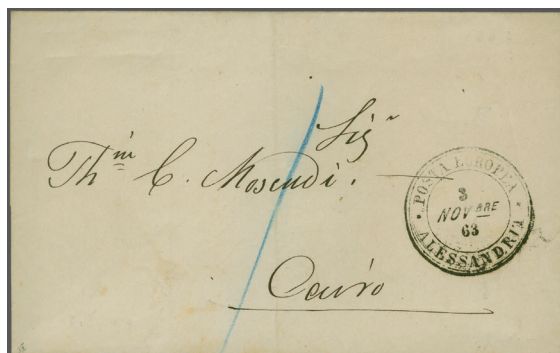 Sigr
Thim C. Moscudi.
Cairo
POSTA EUROPEA
3
NOVBRE
63
ALESSANDRIA